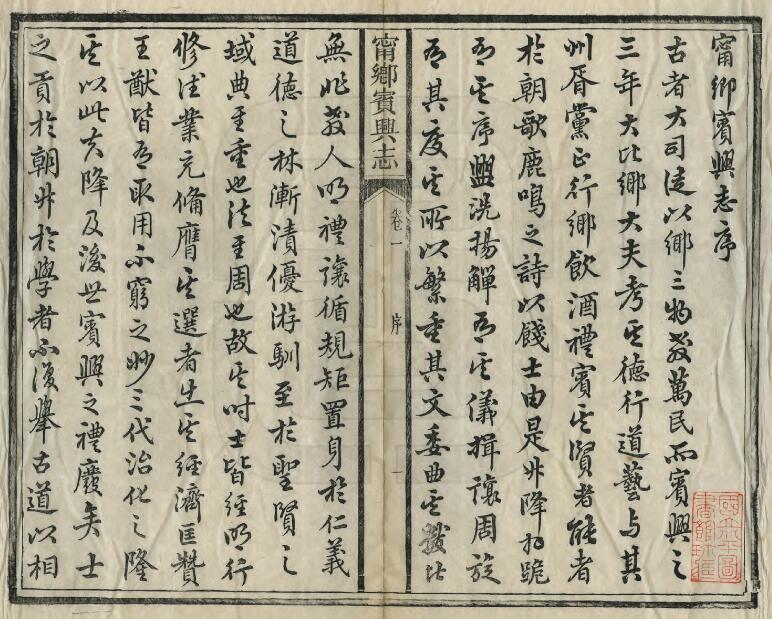 甯鄉賓興志序
古者大司徒以鄉三物教萬民而賓興之
三年大比鄉大夫考其德行道藝与其
州胥黨正行鄉飲酒禮賓其賢者能者
於朝歌鹿鳴之詩以餞士由是升降拜跪
有其序盥洗揚觶有其儀揖讓周旋
有其度其所以繁重其文委曲其
甯鄉賓興志
卷一
序
一
無非教人明禮讓循規矩置身於仁義
道德之林漸漬優游馴至於聖賢之
域典至重也法至周也故其時士皆經明行
修德業充備膺其選者出其經濟匡贊
王猷皆有取用不窮之妙三代治化之隆
其以此夫降及後世賓興之禮廢矣士
之貢於朝升於學者不復舉古道以相